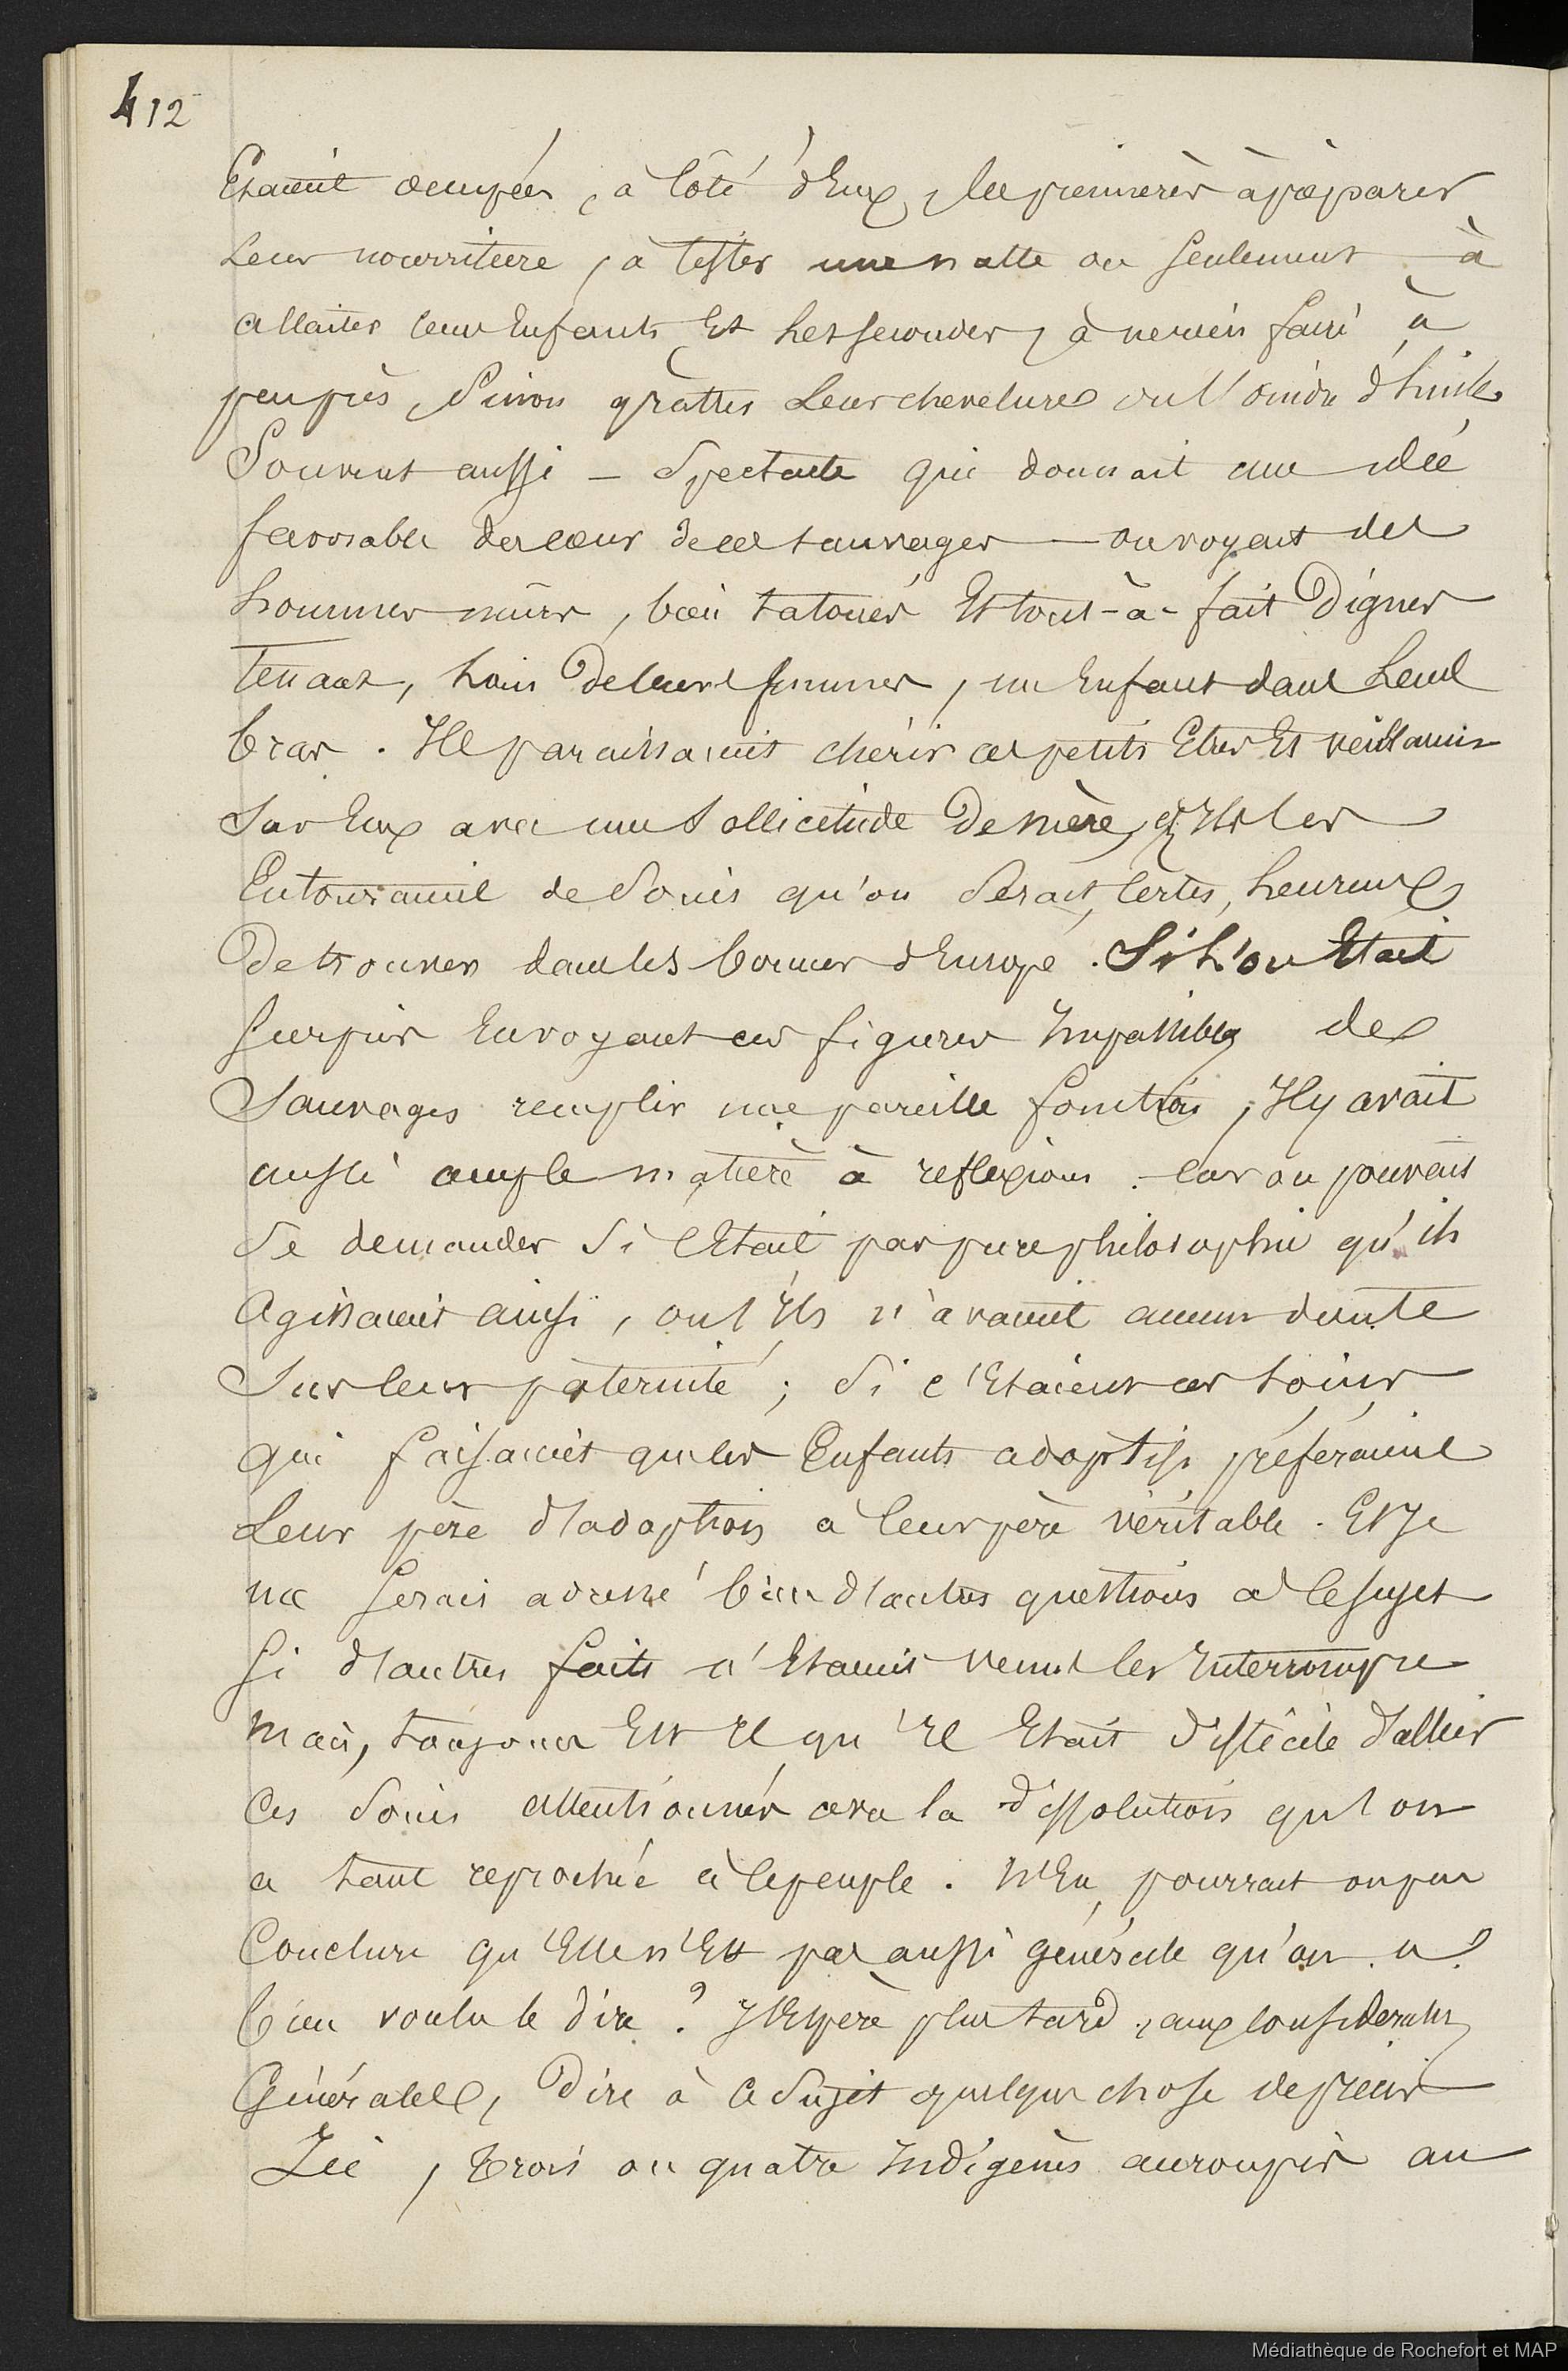 412
Etaient occupées, à côté d'Eux, les premières à préparer
leur nourriture, à tisser une natte ou seulement à
allaiter leurs Enfants Et les secondes, à ne rien faire à
peu près, sinon gratter leur chevelure ou l'oindre d'huile
Souvent aussi — Spectacle qui donnait une idée
favorable du cœur de ces sauvages — on voyait des
hommes mûrs, bien tatoués Et tout-à-fait dignes
tenant, loin de leurs femmes, un Enfant dans leurs
bras. Ils paraissaient chérir ces petits Etres Et veillaient
sur Eux avec une sollicitude de mère, et Ils les
Entouraient de soins qu'on serait, certes, heureux
de trouver dans les bonnes d'Europe. Si l'on Etait
surpris En voyant ces figures Impassibles de
Sauvages remplir une pareille fonction, Il y avait
aussi ample matière à reflexions. Car on pouvait
se demander si c'Etait par pure philosophie qu'ils
Agissaient ainsi, ou s'Ils n'avaient aucun doute
Sur leur paternité ; Si c'Etaient ces soins
qui faisaient que les Enfants adoptifs préféraient
Leur père d'adoption à leur père véritable. Et Je
me serais adressé bien d'autres questions à ce sujet
si d'autres faits n'Etaient venus les Interrompre
mais, toujours Est Il qu'Il Etait difficile d'allier
Ces soins attentionnés avec la dissolution qu'on
a tant reprochée à ce peuple. N'En pourrait on pas
Conclure qu'Elle n'Est pas aussi générale qu'on a
bien voulu le dire ? J'Espère plus tard, aux considerations
Générales, dire à ce Sujet quelque chose de précis
Ici, trois ou quatre Indigènes accroupis au
Médiathèque de Rochefort et MAP